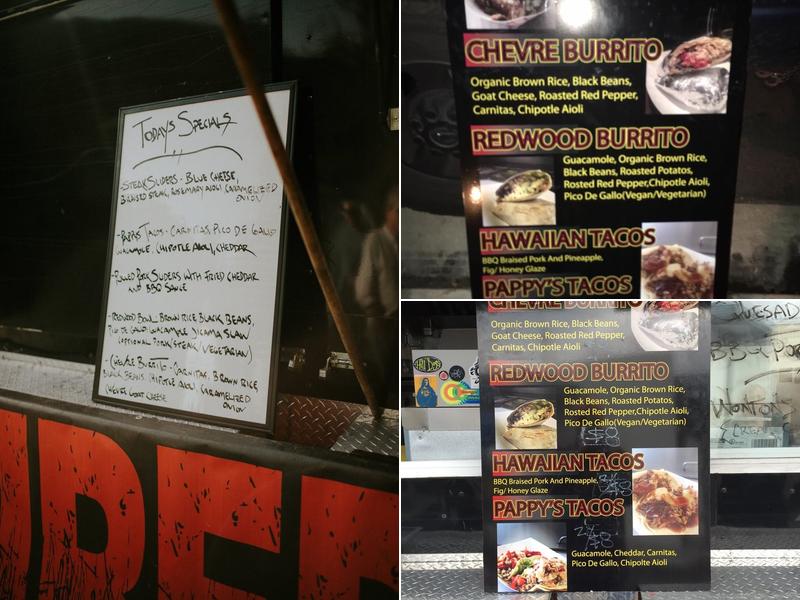 Todays Specials
-Steak Sliders - Blue Cheese,
Braised Steak, Rosemary Aioli Caramelized
onion
-Pappys Tacos - Carnitas, Pico de Gallo
Guacamole, Chipotle Aioli, Cheddar
-Pulled Pork Sliders with Fried Cheddar
and BBQ Sauce
-Redwood Bowl Brown Rice Black Beans,
Pico de Gallo Guacamole Jicama Slaw
(optional Pork/Steak/Vegetarian)
-Chevre Burrito - Carnitas, Brown Rice
Black Beans, Chipotle Aioli, Caramelized
onion
Chevre Goat Cheese
CHEVRE BURRITO
Organic Brown Rice, Black Beans,
Goat Cheese, Roasted Red Pepper,
Carnitas, Chipotle Aioli
REDWOOD BURRITO
Guacamole, Organic Brown Rice,
Black Beans, Roasted Potatos,
Rosted Red Pepper,Chipotle Aioli,
Pico De Gallo(Vegan/Vegetarian)
HAWAIIAN TACOS
BBQ Braised Pork And Pineapple,
Fig/ Honey Glaze
PAPPY'S TACOS
CHEVRE BURRITO
Organic Brown Rice, Black Beans,
Goat Cheese, Roasted Red Pepper,
Carnitas, Chipotle Aioli
REDWOOD BURRITO
Guacamole, Organic Brown Rice,
Black Beans, Roasted Potatos,
Rosted Red Pepper,Chipotle Aioli,
Pico De Gallo(Vegan/Vegetarian)
$8
HAWAIIAN TACOS
BBQ Braised Pork And Pineapple,
Fig/ Honey Glaze
PAPPY'S TACOS
Guacamole, Cheddar, Carnitas,
Pico De Gallo, Chipolte Aioli
QUESAD
BBQ Po
WONTON